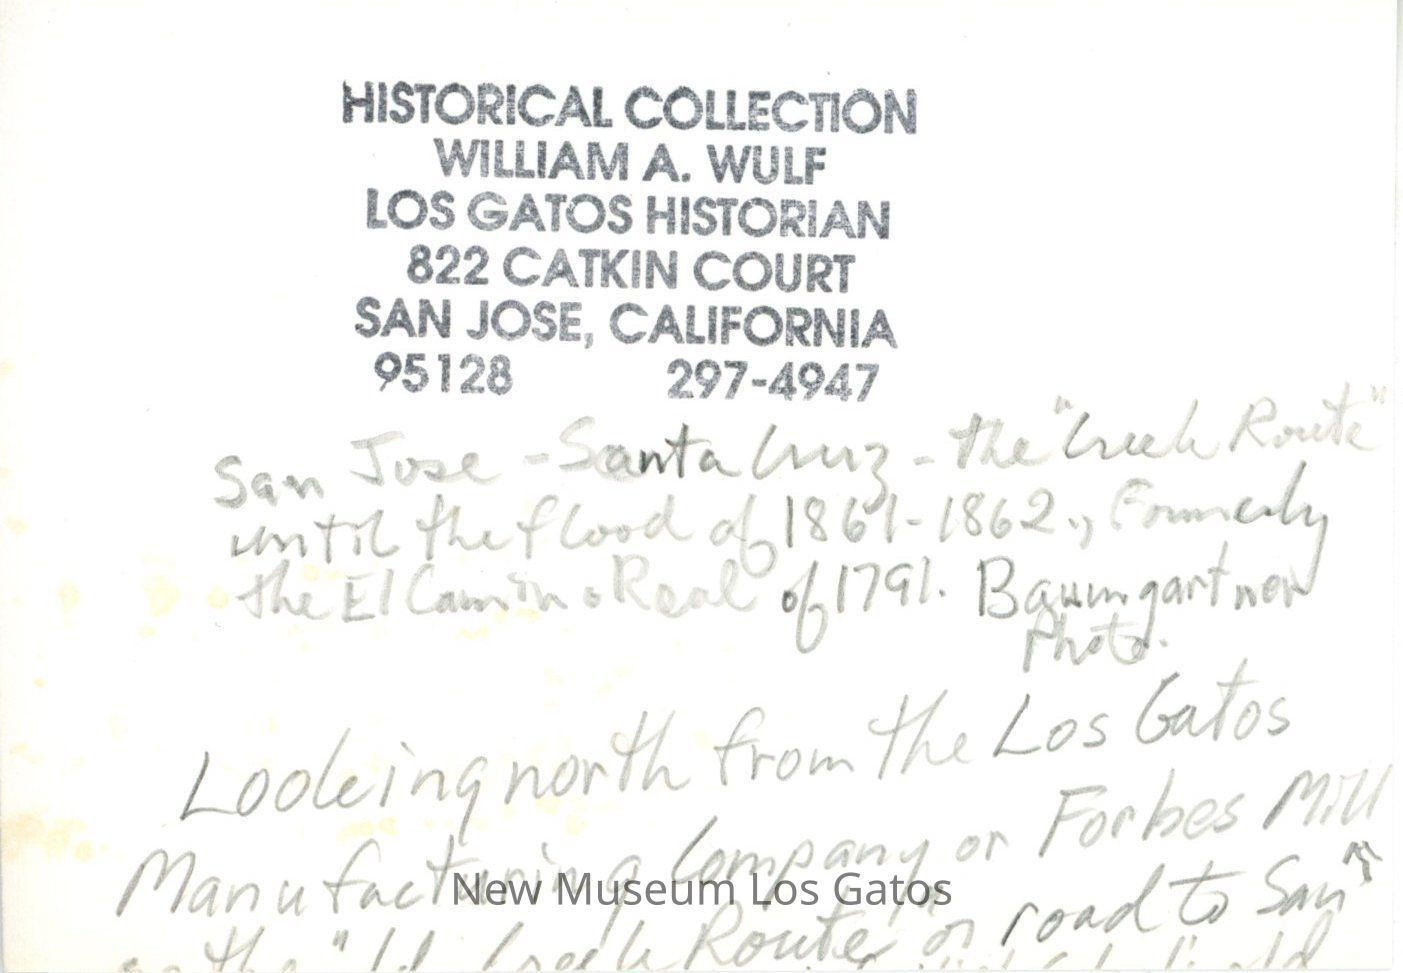 HISTORICAL COLLECTION
WILLIAM A. WULF
LOS GATOS HISTORIAN
822 CATKIN COURT
SAN JOSE, CALIFORNIA
95128 297-4947
San Jose - Santa Cruz - the "Creek Route"
until the flood of 1861-1862., Formerly
the El Camino Real of 1791. Baumgartner
Photo.
Looking north from the Los Gatos
Manufacturing Company or Forbes Mill
New Museum Los Gatos
the "Creek Route" or road to San